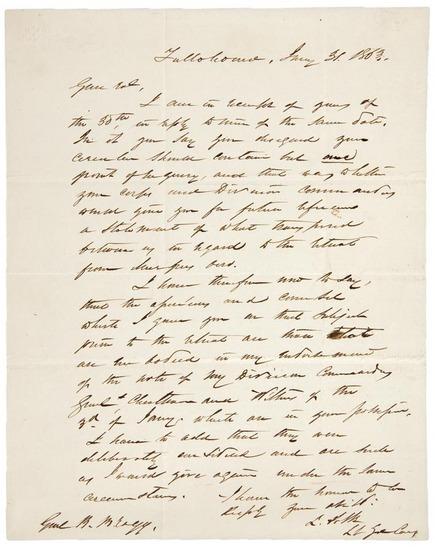 Tullahoma, Jany 31. 1863.
General,
I am in receipt of yours of
the 30th, in reply to mine of the same date.
In it you say you designed your
circular should contain but one
point of inquiry, and that was whether
your corps and Division Commanders
would give you for future reference
a statement of what transpired
between us in regard to the retreat
from Murfreesboro.
I have therefore now to say,
that the opinions and counsel
which I gave you on that subject
prior to the retreat are those that
are embodied in my endorsement
of the note of my Division Commanders
Genls Cheatham and Withers of the
3rd of Jany. which are in your possession.
I have to add that they were
deliberately considered and are such
as I would give again under the same
circumstances.
I have the honor to be
Respy your obdt:
L. Polk
Lt Gen Comg
Genl B. Bragg.